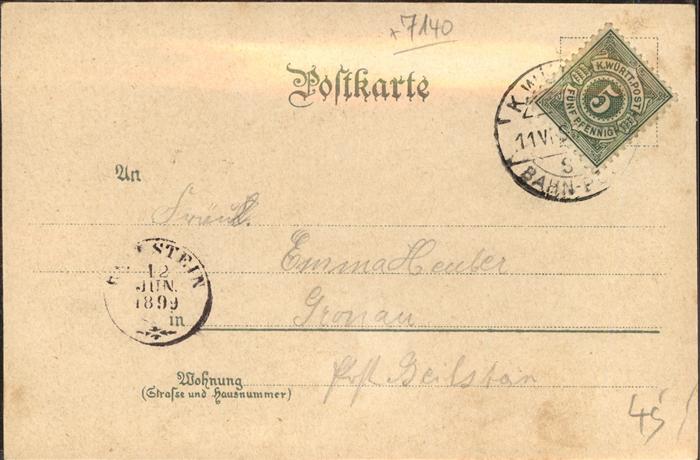 +7140
Postkarte
K. WÜRTT. POST
5
FÜNF PFENNIG
K.W
11 VI
S
BAHN-P
An
Fräul.
Emma Heuber
STEIN
12
JUN.
1899
in
Gronau
Post Beilstein
Wohnung
(Strasse und Hausnummer)
45